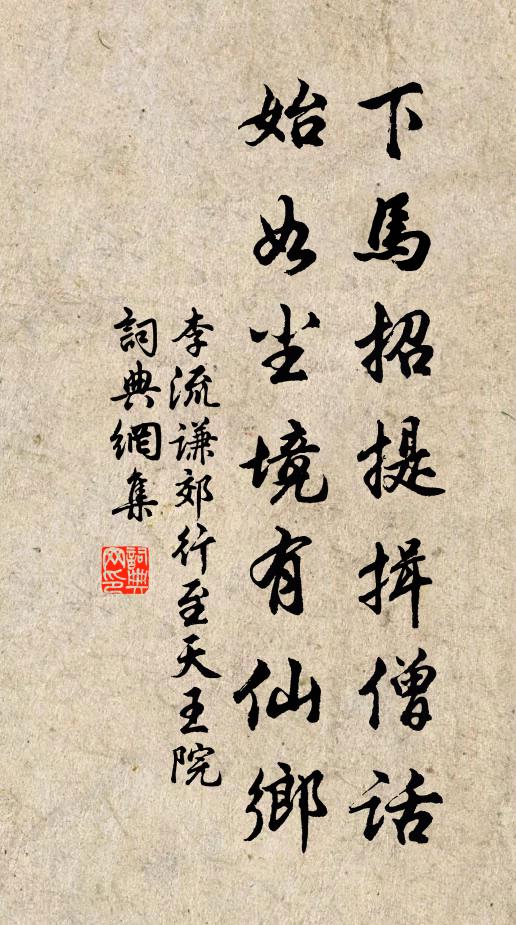 下馬招提揖僧話
始如尘境有仙鄉
李流谦郊行至天王院
詞典網集
詞典
网印